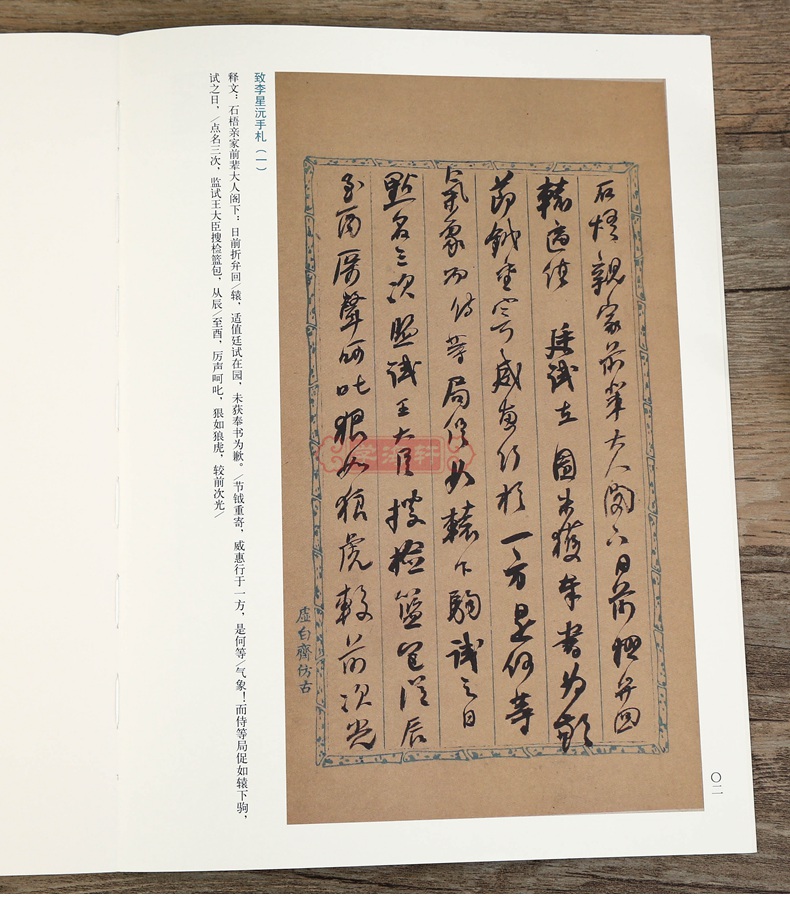 石梧親家前輩大人閣下日前摺弁回
轅適值 廷試在 園未獲奉書為歉
節鉞重寄威惠行於一方是何等
氣象而侍等局促如轅下駒試之日
點名三次監試王大臣搜檢籃包從辰
至酉厲聲呵叱狠如狼虎較前次光
虛白齋仿古
学海轩
致李星沅手札（一）
释文：石梧亲家前辈大人阁下：日前折弁回/辕，适值廷试在园，未获奉书为歉。/节钺重寄，威惠行于一方，是何等/气象！而侍等局促如辕下驹，
试之日，/点名三次，监试王大臣搜检篮包，从辰/至酉，厉声呵叱，狠如狼虎，较前次光/
〇二